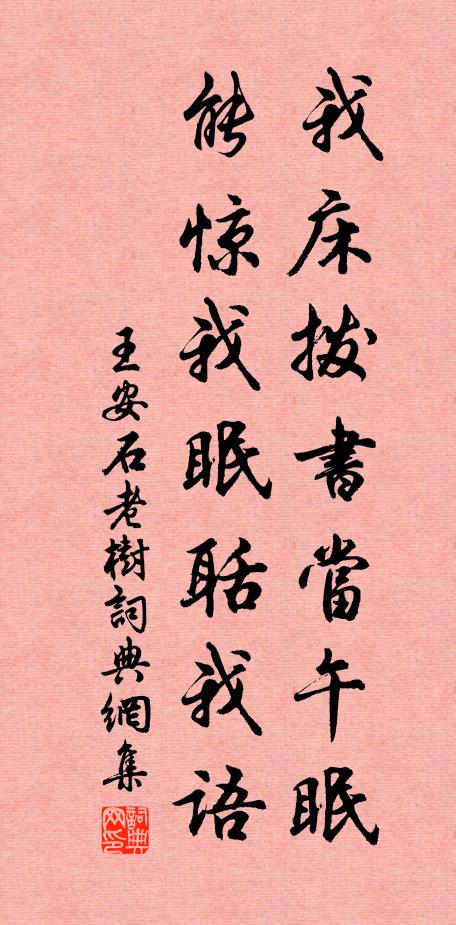 我床拨書當午眠
能惊我眠聒我語
王安石老樹詞典網集
詞典
网印